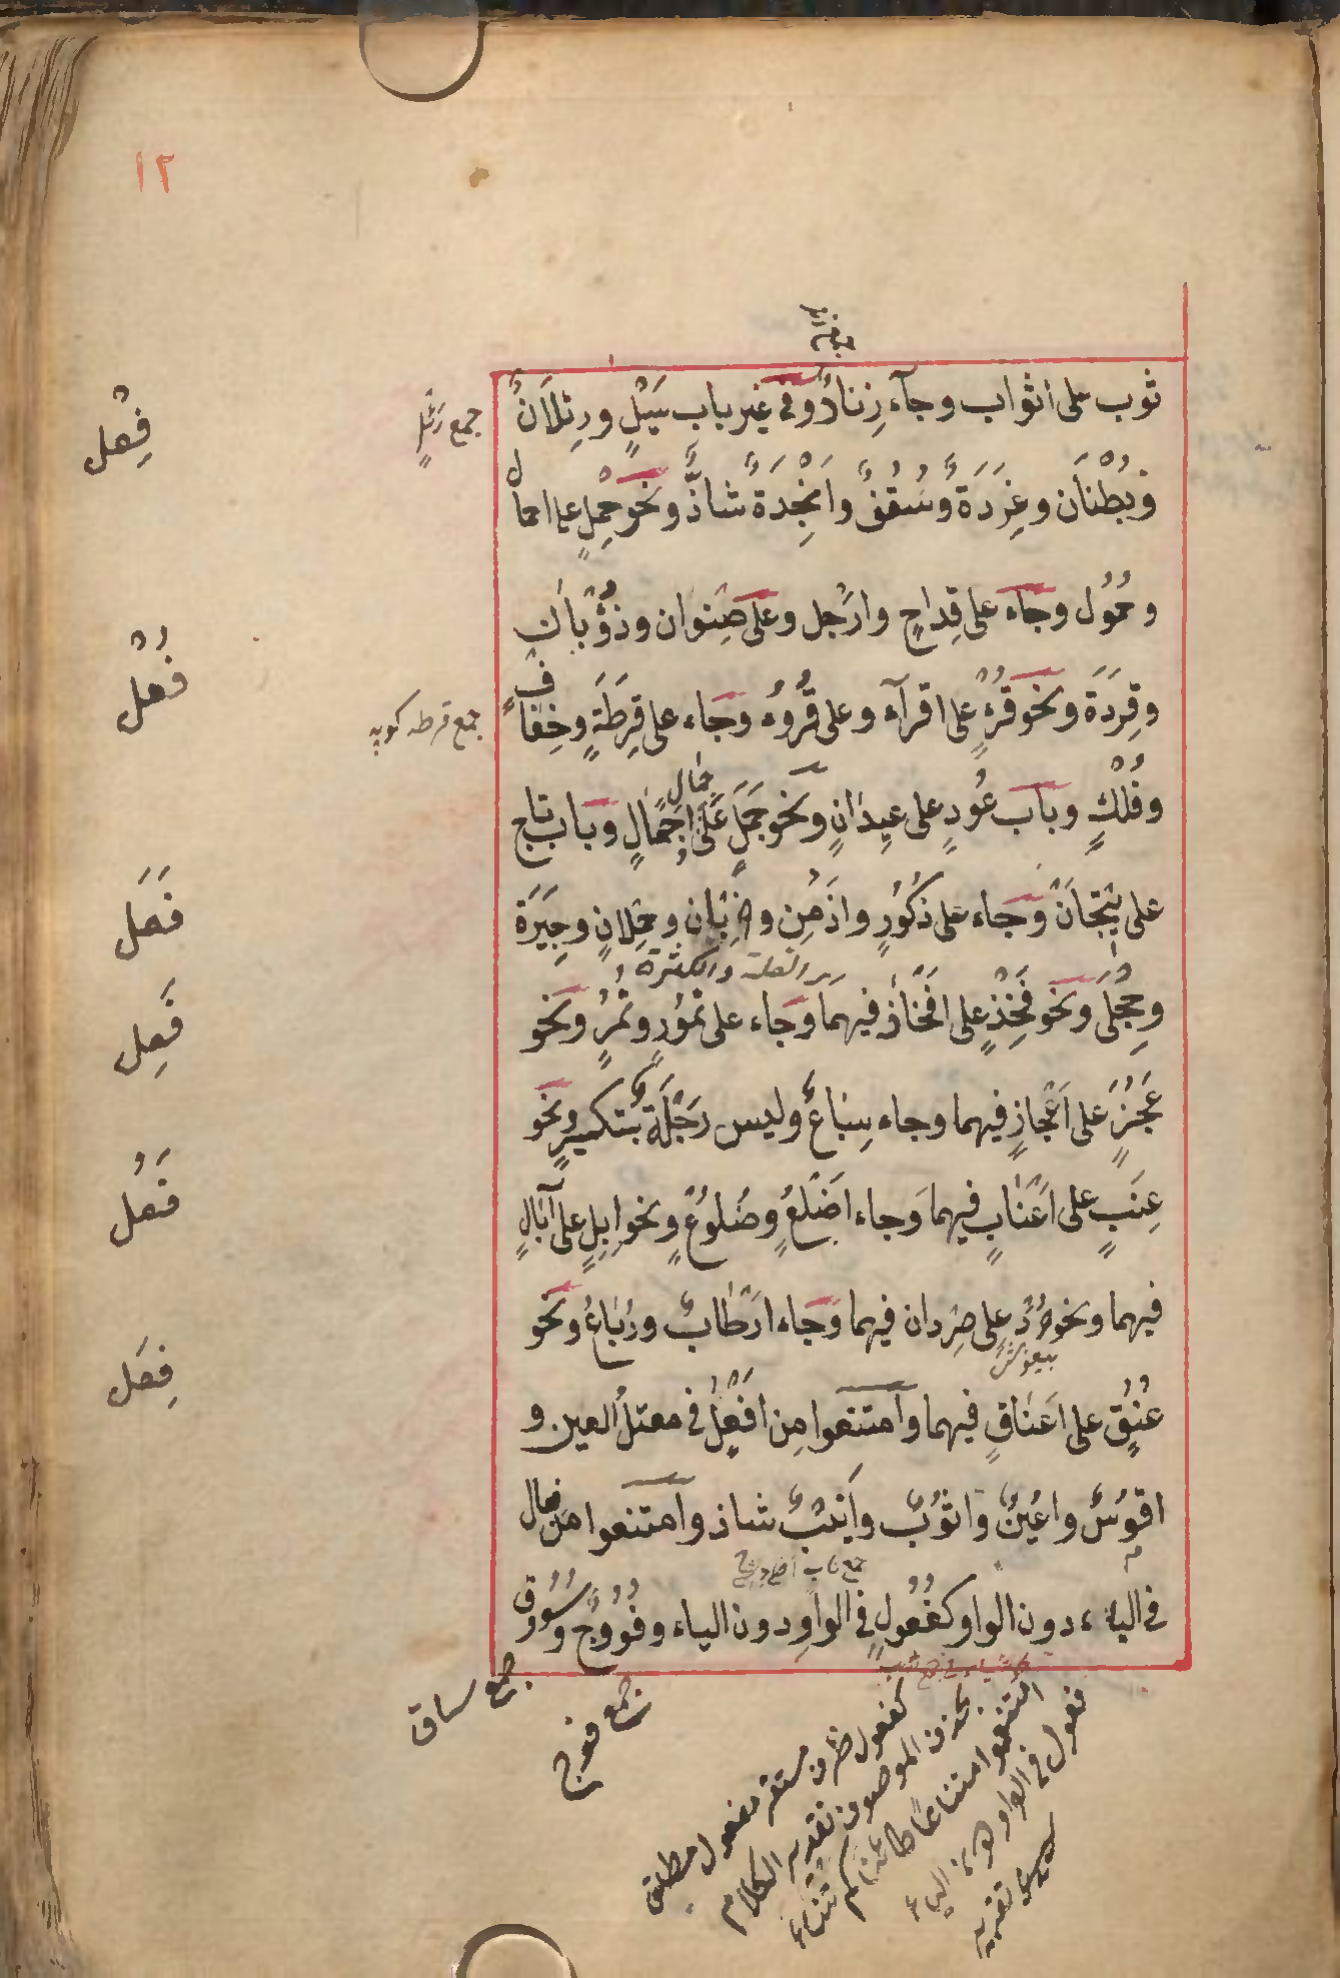 ١٢
ثوب على اثواب وجآء زِنَادٌ وفى غير باب سَيْلٍ ورِئْلَانٌ
وَبُطْنَان وغِرَدَةٌ وَسُقُفٌ وَاَنْجِدَةٌ شاذٌّ ونحو حِمْلٍ على احمال
وحُمُول وجاء على قِداحٍ وارْجُل وعلى صِنْوان وذُؤْبان
وقِرَدَة ونحو قُرْءٍ على اقرآء وعلى قُرُوء وجاء على قِرِطَةٍ وخِفافٍ
وفُلْكٍ وباب عُودٍ على عِيدانٍ ونحو جَمَلٍ على اجمالٍ وجمال وباب تاج
على تِيْجَانٍ وجاء على ذكُورٍ وازْمُنٍ وخِرْبان وحُملانٍ وجِيَرَة
وحِجْلَى ونحو فَخِذٍ على افْخَاذٍ فيهما وجاء على نُمُورٍ ونُمُرٍ ونحو
عَجُزٍ على اَعْجازٍ فيهما وجاء سِباعٌ وليس رَجْلَةٌ بتكسيرٍ ونحو
عِنَبٍ على اَعْنَابٍ فيهما وجاء اَضْلُعٍ وضُلوُعٍ ونحو اِبِلٍ على آبَالٍ
فيهما ونحو صُرَدٍ على صِرْدان فيهما وجاء ارْطَابٌ ورُبَاعٌ ونحو
عُنُقٍ على اَعْنَاقٍ فيهما وآمتنعوا مِن اَفْعُلٍ فى معتل العين و
اقوُسٌ واعْيُنٌ واثوُبٌ وآنيُبٌ شاذ وآمتنعوا من فعال
فى الياء دون الواو كفُعُولٍ فى الواوِ دون الياء وفُوُوجٌ وسُوُوق
فِعْل
جمع رَئْلٍ
فُعْل
جمع قرطه
فَعَل
فَعِل
فَعُل
فِعَل
القلة والكثرة
جمع ساق
جمع فوج
كفعول ظرف مستقر مفعول مطلق
بحذف الموصوف تقديره الكلام
امتنعوا امتناعًا كائنًا كامتناع
فعول فى الواو دون الياء